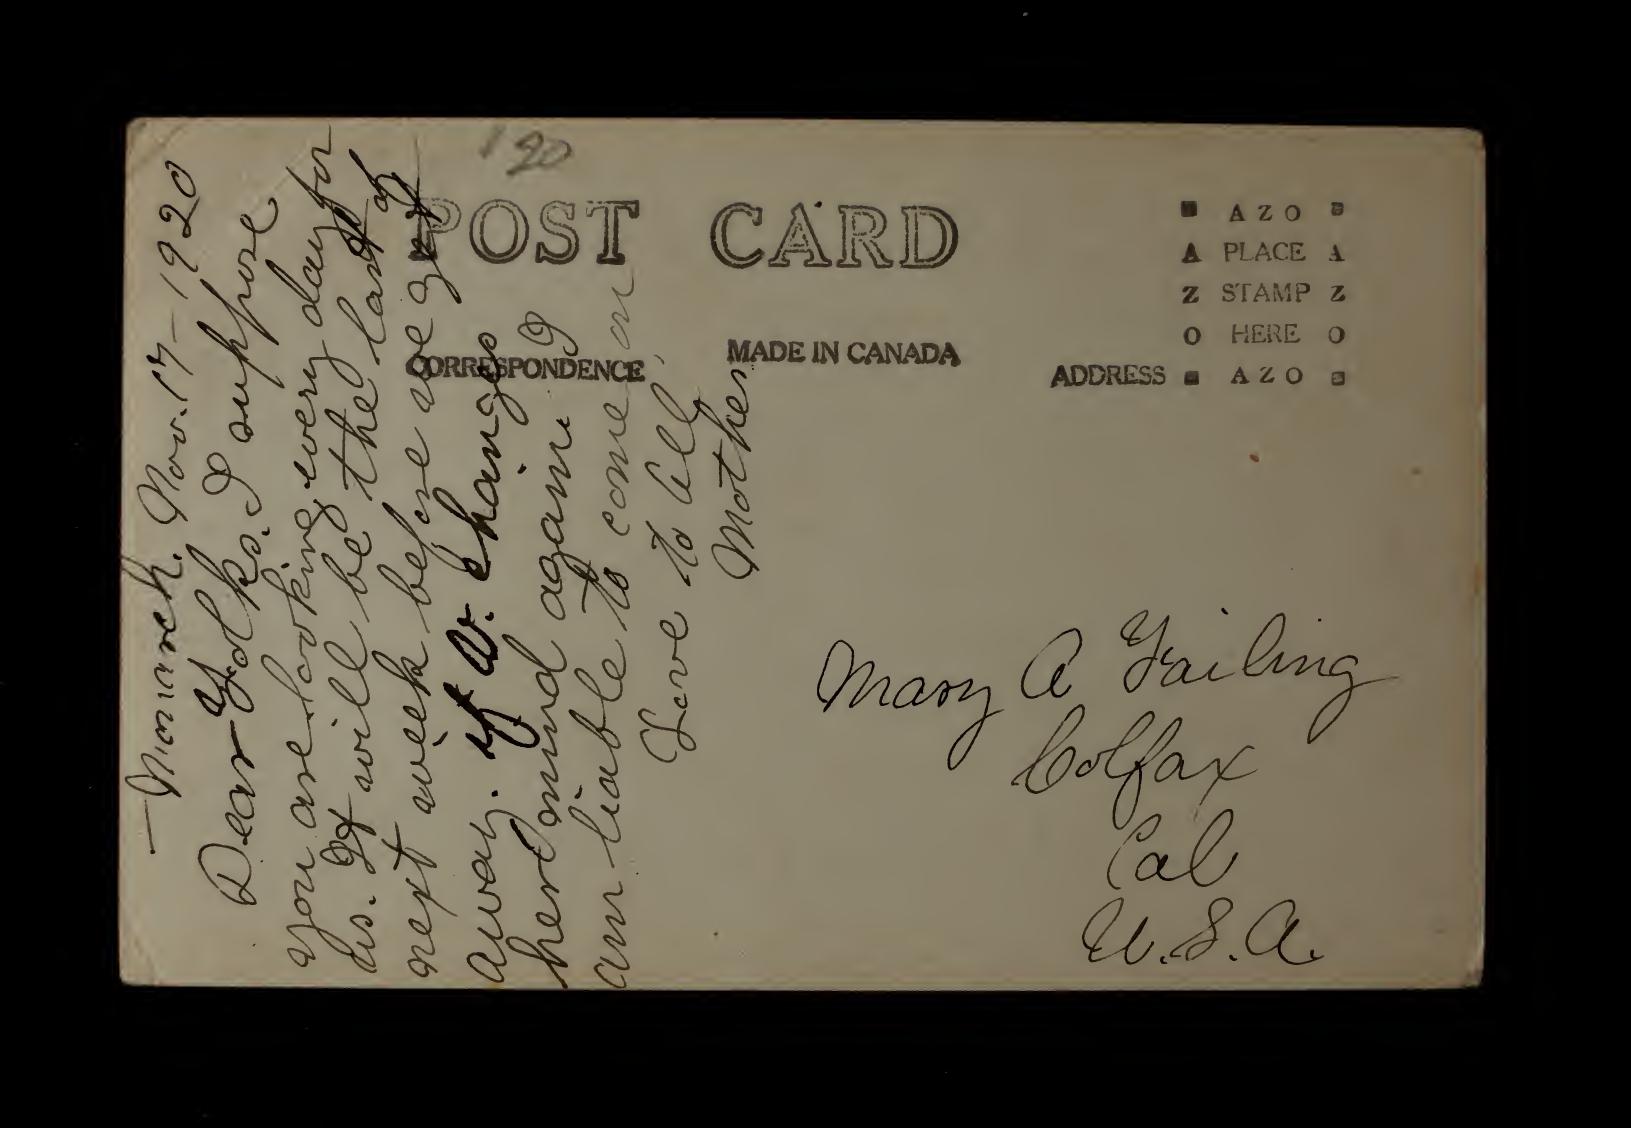 120
POST CARD
CORRESPONDENCE
MADE IN CANADA
ADDRESS
AZO
A PLACE A
Z STAMP Z
O HERE O
AZO
Monarch. Nov. 17-1920
Dear Folks. I suppose
you are looking every day for
us. It will be the last of
next week before we get off
away. if W. changes
her mind again I
am liable to come on
Love to all,
Mother
Mary A Failing
Colfax
Cal
U.S.A.